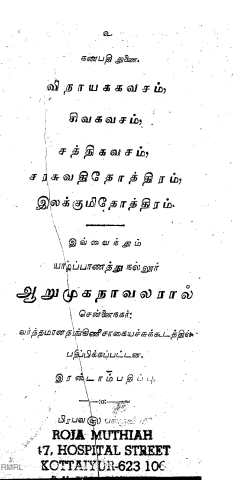 உ
கணபதி துணை.
விநாயககவசம்,
சிவகவசம்,
சத்திகவசம்,
சரசுவதிதோத்திரம்,
இலக்குமிதோத்திரம்.
இவ்வைந்தும்
யாழ்ப்பாணத்து நல்லூர்
ஆறுமுகநாவலரால்
சென்னைநகர்:
வர்த்தமானதரங்கிணீசாகையச்சுக்கூடத்தில்
பதிப்பிக்கப்பட்டன.
இரண்டாம்பதிப்பு
பிரபவ
ROJA MUTHIAH
47, HOSPITAL STREET
KOTTAIYUR-623 106
RMRL